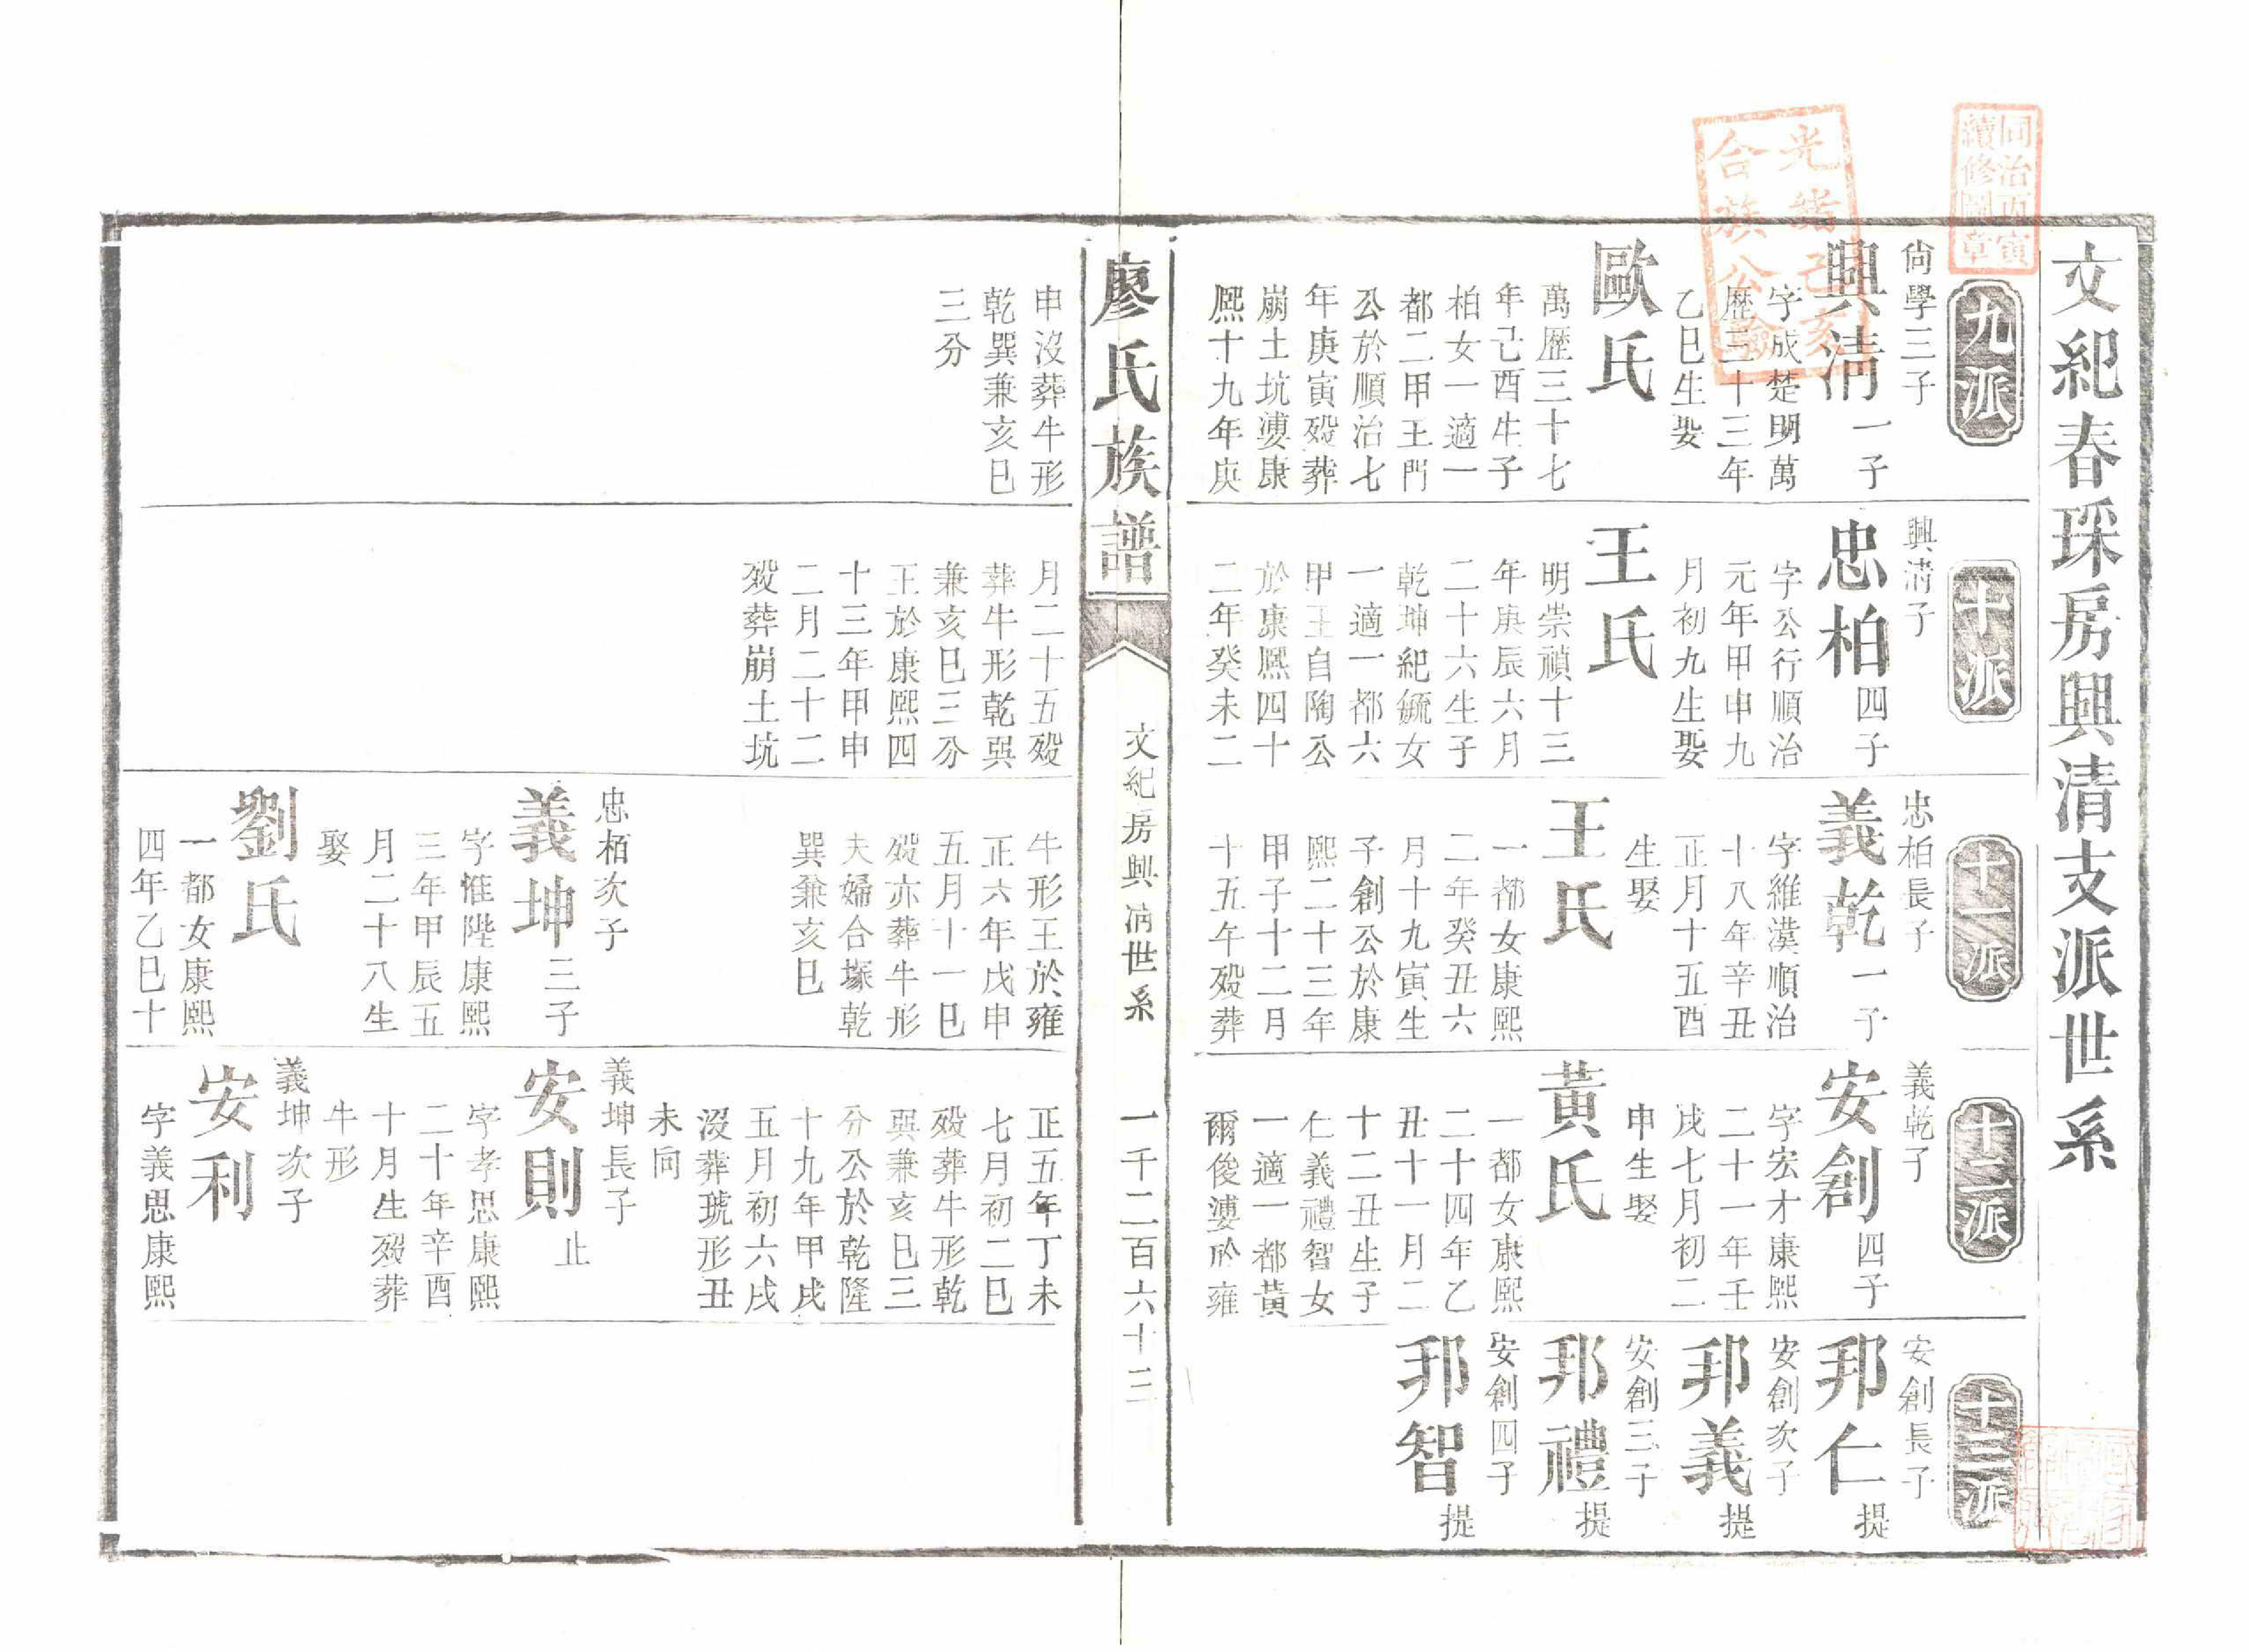 文紀春琛房興清支派世系
九派
尙學三子
興清
一子
字成楚明萬
歷三十三年
乙巳生娶
歐氏
萬歷三十七
年己酉生子
柏女一適一
都二甲王門
公於順治七
年庚寅歿葬
崩土坑漊康
熙十九年庚
申沒葬牛形
乾巽兼亥巳
三分
十派
興清子
忠柏
四子
字公行順治
元年甲申九
月初九生娶
王氏
明崇禎十三
年庚辰六月
二十六生子
乾坤紀毓女
一適一都六
甲王自陶公
於康熙四十
二年癸未二
月二十五歿
葬牛形乾巽
兼亥巳三分
王於康熙四
十三年甲申
二月二十二
歿葬崩土坑
十一派
忠柏長子
義乾
一子
字維漢順治
十八年辛丑
正月十五酉
生娶
王氏
一都女康熙
二年癸丑六
月十九寅生
子創公於康
熙二十三年
甲子十二月
十五午歿葬
牛形王於雍
正六年戊申
五月十一巳
歿亦葬牛形
夫婦合塚乾
巽兼亥巳
忠栢次子
義坤
三子
字惟陛康熙
三年甲辰五
月二十八生
娶
劉氏
一都女康熙
四年乙巳十
十二派
義乾子
安創
四子
字宏才康熙
二十一年壬
戌七月初二
申生娶
黃氏
一都女康熙
二十四年乙
丑十一月二
十二丑生子
仁義禮智女
一適一都黃
爾俊漊於雍
正五年丁未
七月初二巳
歿葬牛形乾
巽兼亥巳三
分公於乾隆
十九年甲戌
五月初六戌
沒葬琥形丑
未向
義坤長子
安則
止
字孝思康熙
二十年辛酉
十月生歿葬
牛形
義坤次子
安利
字義思康熙
十三派
安創長子
邦仁
提
安創次子
邦義
提
安創三子
邦禮
提
安創四子
邦智
提
廖氏族譜
文紀房興清世系
一千二百六十三
同治丙寅
續修圖章
光緒己亥
合族公驗